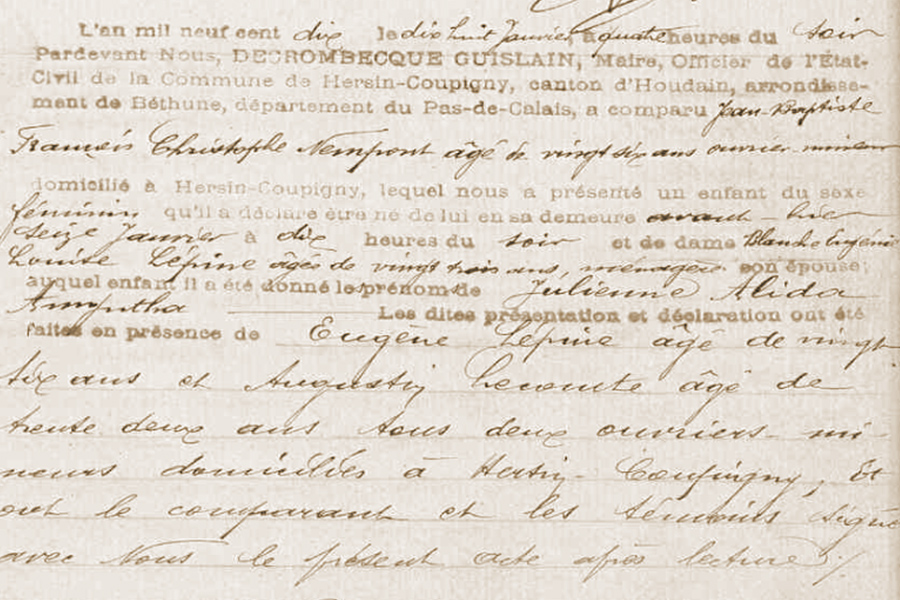 L'an mil neuf cent dix le dix huit Janvier, à quatre heures du soir
Pardevant Nous, DECROMBECQUE GUISLAIN, Maire, Officier de l'État-
Civil de la Commune de Hersin-Coupigny, canton d'Houdain, arrondisse-
ment de Béthune, département du Pas-de-Calais, a comparu Jean-Baptiste
François Christophe Nempont âgé de vingt six ans ouvrier mineur
domicilié à Hersin-Coupigny, lequel nous a présenté un enfant du sexe
féminin qu'il a déclaré être né de lui en sa demeure avant-hier
seize Janvier à dix heures du soir et de dame Blanche Eugénie
Louise Lépine âgée de vingt trois ans, ménagère son épouse;
auquel enfant il a été donné les prénom de Julienne Alida
Les dites présentation et déclaration ont été
faites en présence de Eugène Lépine âgé de vingt
six ans et Augustin Lecomte âgé de
trente deux ans tous deux ouvriers mi-
neurs domiciliés à Hersin-Coupigny, Et
ont le comparant et les témoins signé
avec Nous le présent acte après lecture ./